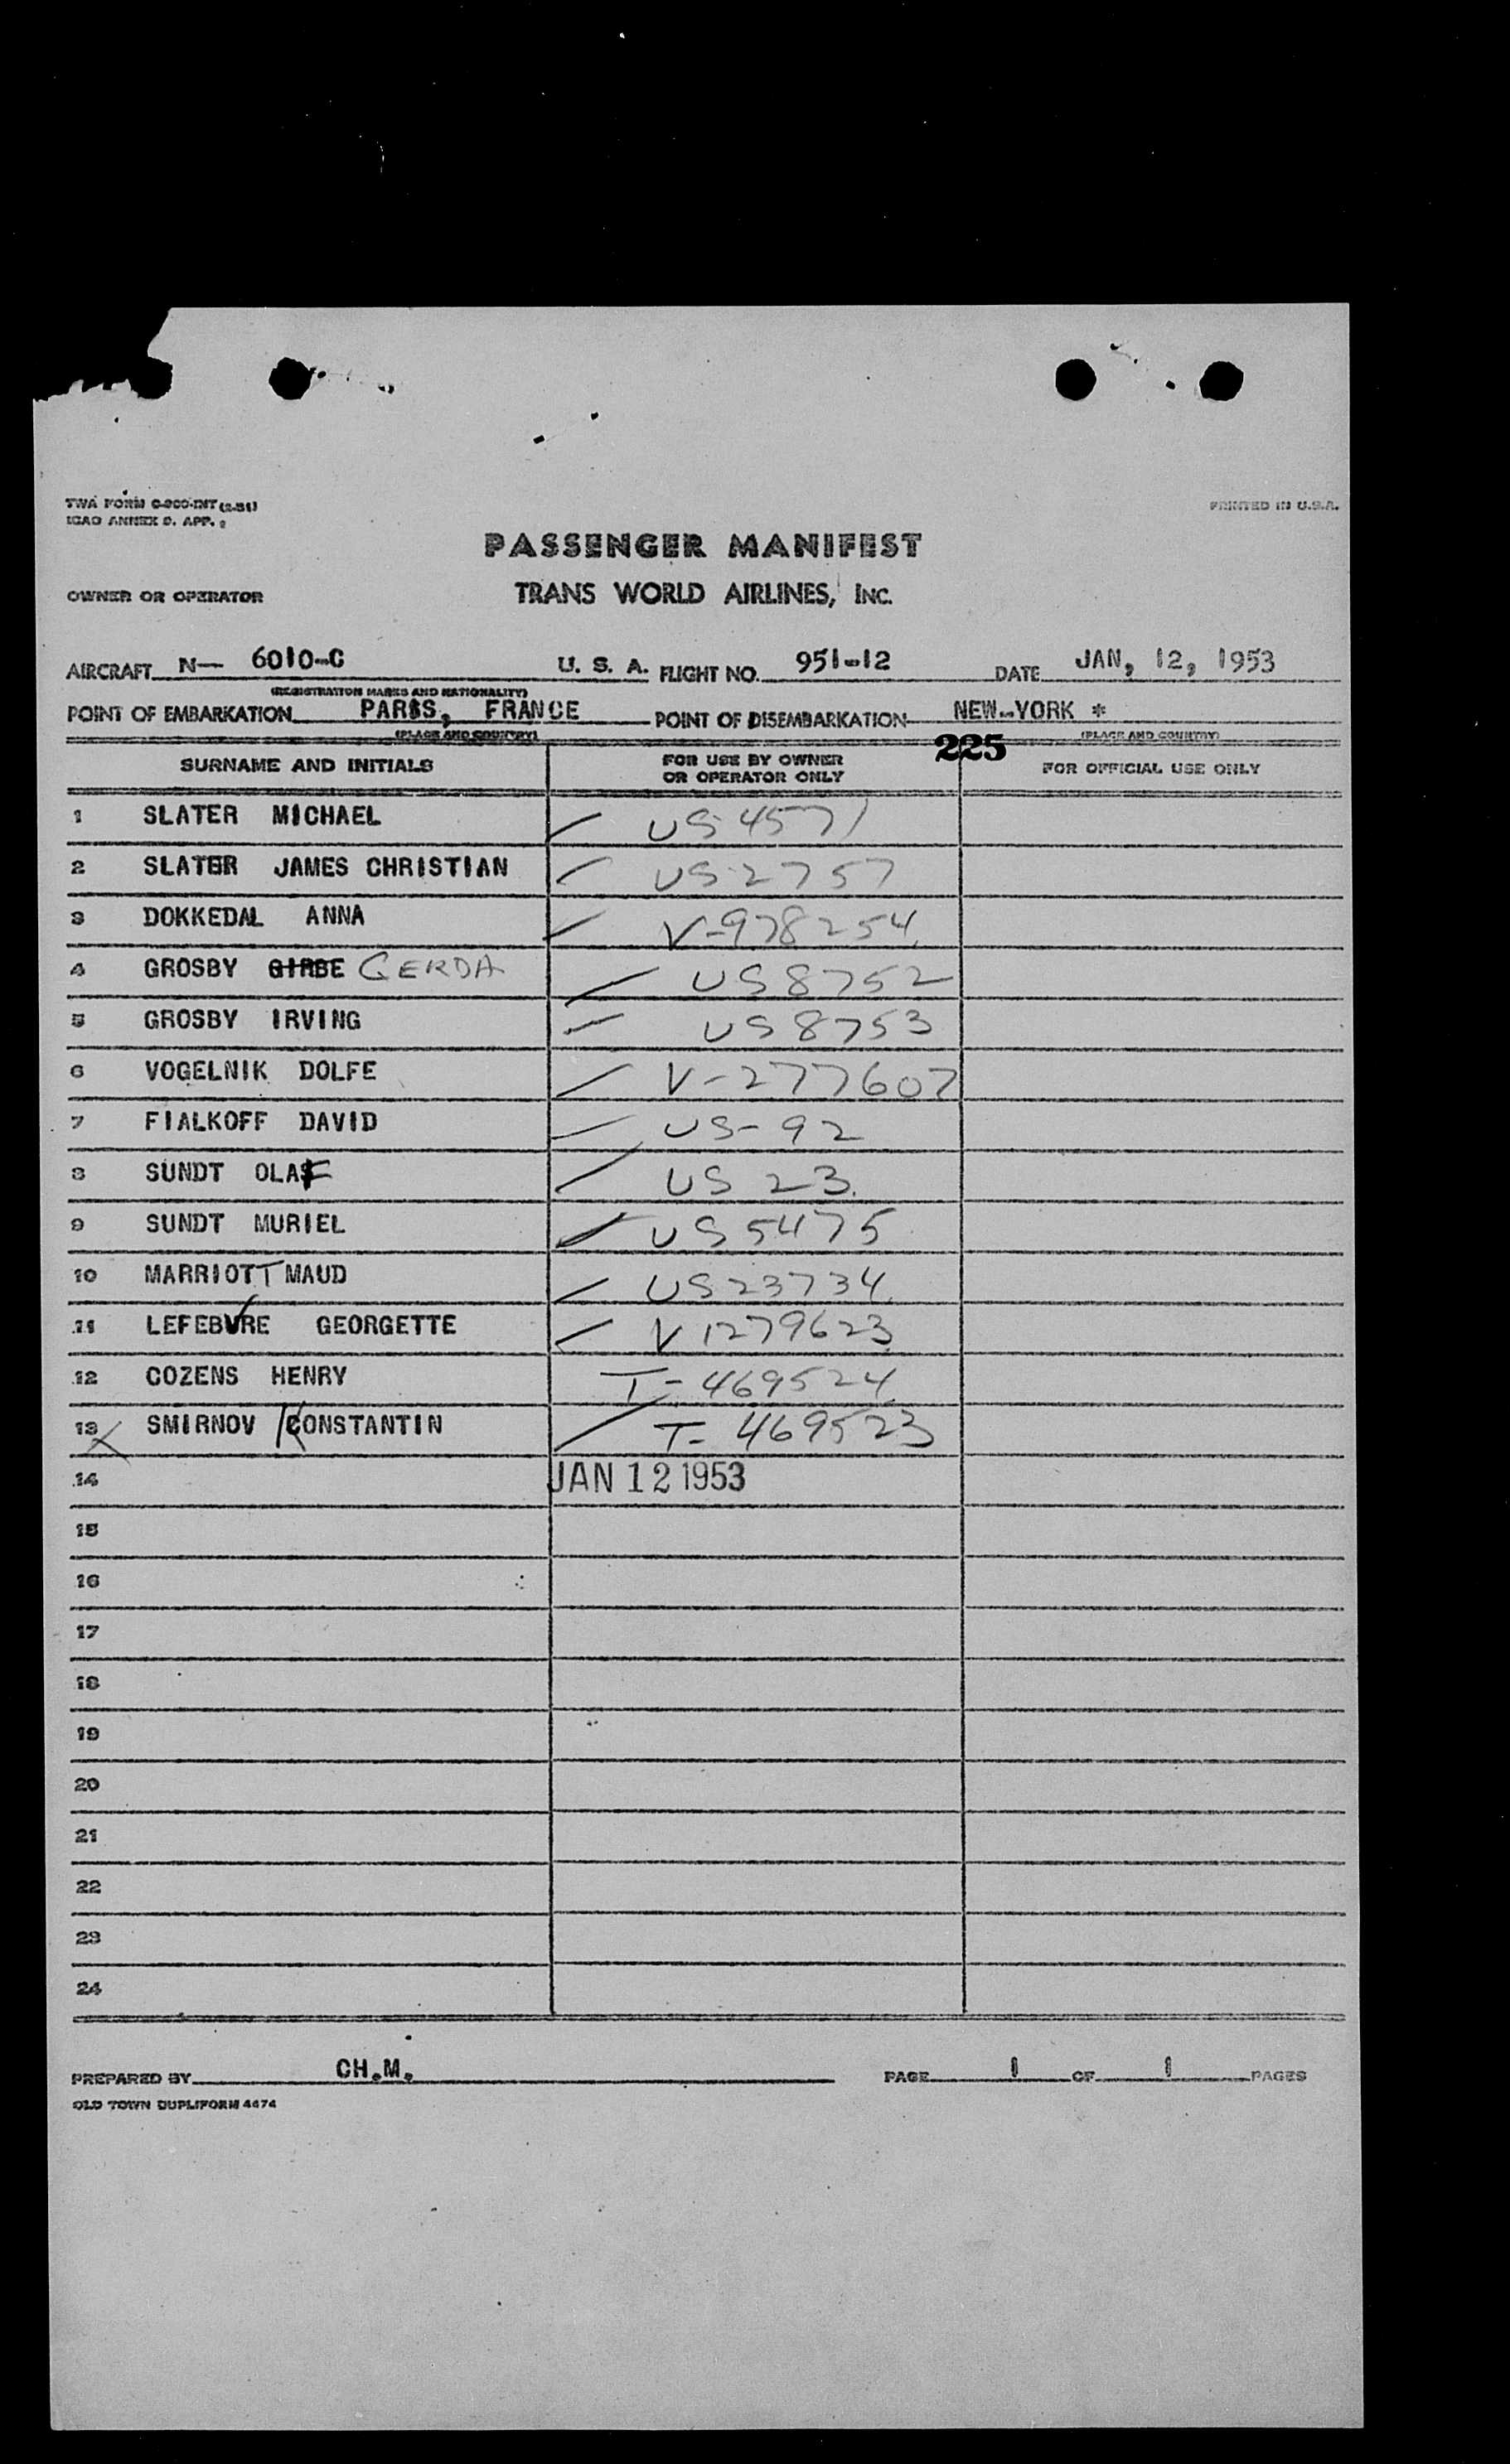 TWA FORM C-900-INT (2-51)
ICAO ANNEX 9. APP. 2
PRINTED IN U.S.A.
PASSENGER MANIFEST
OWNER OR OPERATOR TRANS WORLD AIRLINES, INC.
AIRCRAFT N— 6010-C U. S. A. FLIGHT NO. 951-12 DATE JAN, 12, 1953
(REGISTRATION MARKS AND NATIONALITY)
POINT OF EMBARKATION PARIS, FRANCE POINT OF DISEMBARKATION NEW-YORK *
(PLACE AND COUNTRY) (PLACE AND COUNTRY)
225
SURNAME AND INITIALS FOR USE BY OWNER OR OPERATOR ONLY FOR OFFICIAL USE ONLY
1 SLATER MICHAEL US 4571
2 SLATER JAMES CHRISTIAN US 2757
3 DOKKEDAL ANNA V-978254
4 GROSBY GIRBE GERDA US 8752
5 GROSBY IRVING US 8753
6 VOGELNIK DOLFE V-277607
7 FIALKOFF DAVID US-92
8 SUNDT OLAF US 23
9 SUNDT MURIEL US 5475
10 MARRIOTT MAUD US 23734
11 LEFEBVRE GEORGETTE V 1279623
12 COZENS HENRY T-469524
13 SMIRNOV KONSTANTIN T-469523
14 JAN 12 1953
15
16
17
18
19
20
21
22
23
24
PREPARED BY CH.M. PAGE 1 OF 1 PAGES
OLD TOWN DUPLIFORM 4474